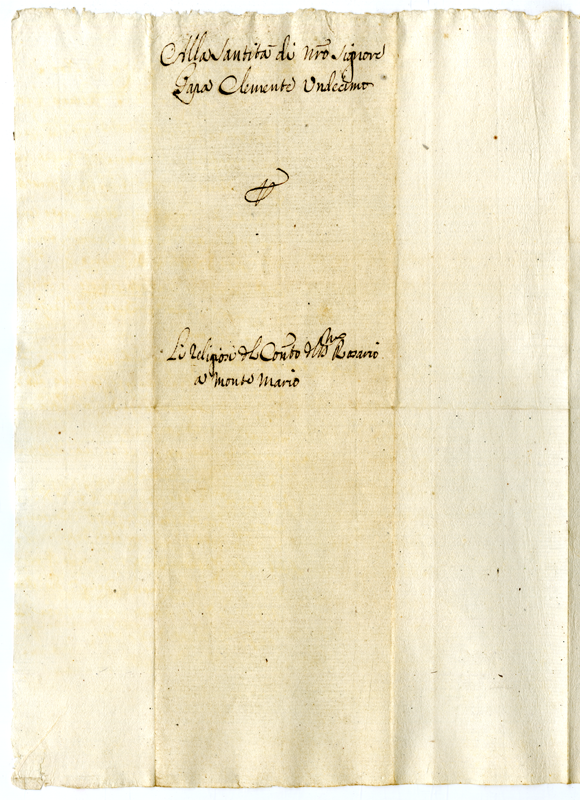 Alla Santità di Nro Signore
Papa Clemente Undecimo
Li Religiosi del Conto del Rosario
a Monte Mario